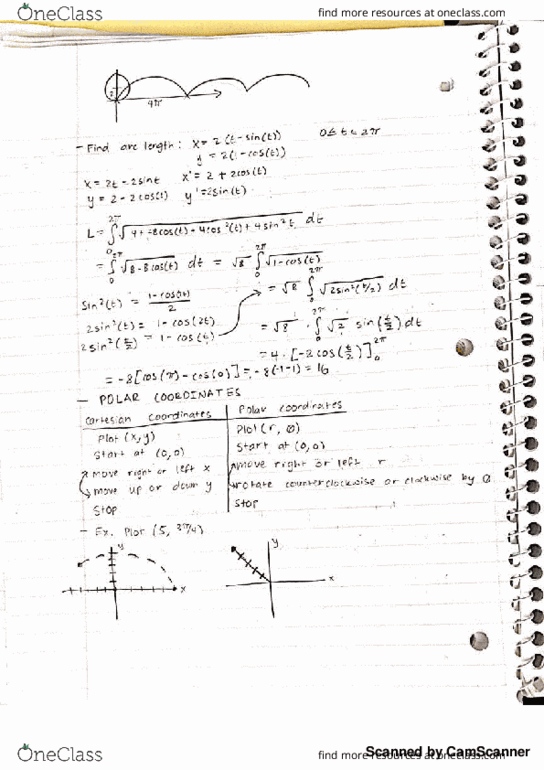 OneClass
find more resources at oneclass.com
2
4π
- Find arc length: x = 2(t-sin(t)) 0≤t≤2π
y = 2(1-cos(t))
x = 2t-2sint x' = 2+2cos(t)
y = 2-2cos(t) y' = 2sin(t)
L = ∫₀^2π √4+-8cos(t)-4cos²(t)+4sin²t dt
= ∫₀^2π √8-8cos(t) dt = √8 ∫₀^2π √1-cos(t)
sin²(t) = 1-cos(2t)/2 → = √8 ∫₀^2π √2sin²(t/2) dt
2sin²(t) = 1-cos(2t) = √8 · ∫₀^2π √2 sin(t/2) dt
2sin²(t/2) = 1-cos(t)
= 4·[-2cos(t/2)]₀^2π
= -8[cos(π)-cos(0)] = -8(-1-1) = 16
- POLAR COORDINATES
Cartesian Coordinates Polar coordinates
Plot (x,y) Plot (r, Ø)
Start at (0,0) Start at (0,0)
move right or left x move right or left r
move up or down y rotate counterclockwise or clockwise by Ø
Stop Stop
- Ex. Plot (5, 3π/4)
y x
y x
OneClass
find more resources at oneclass.com
Scanned by CamScanner